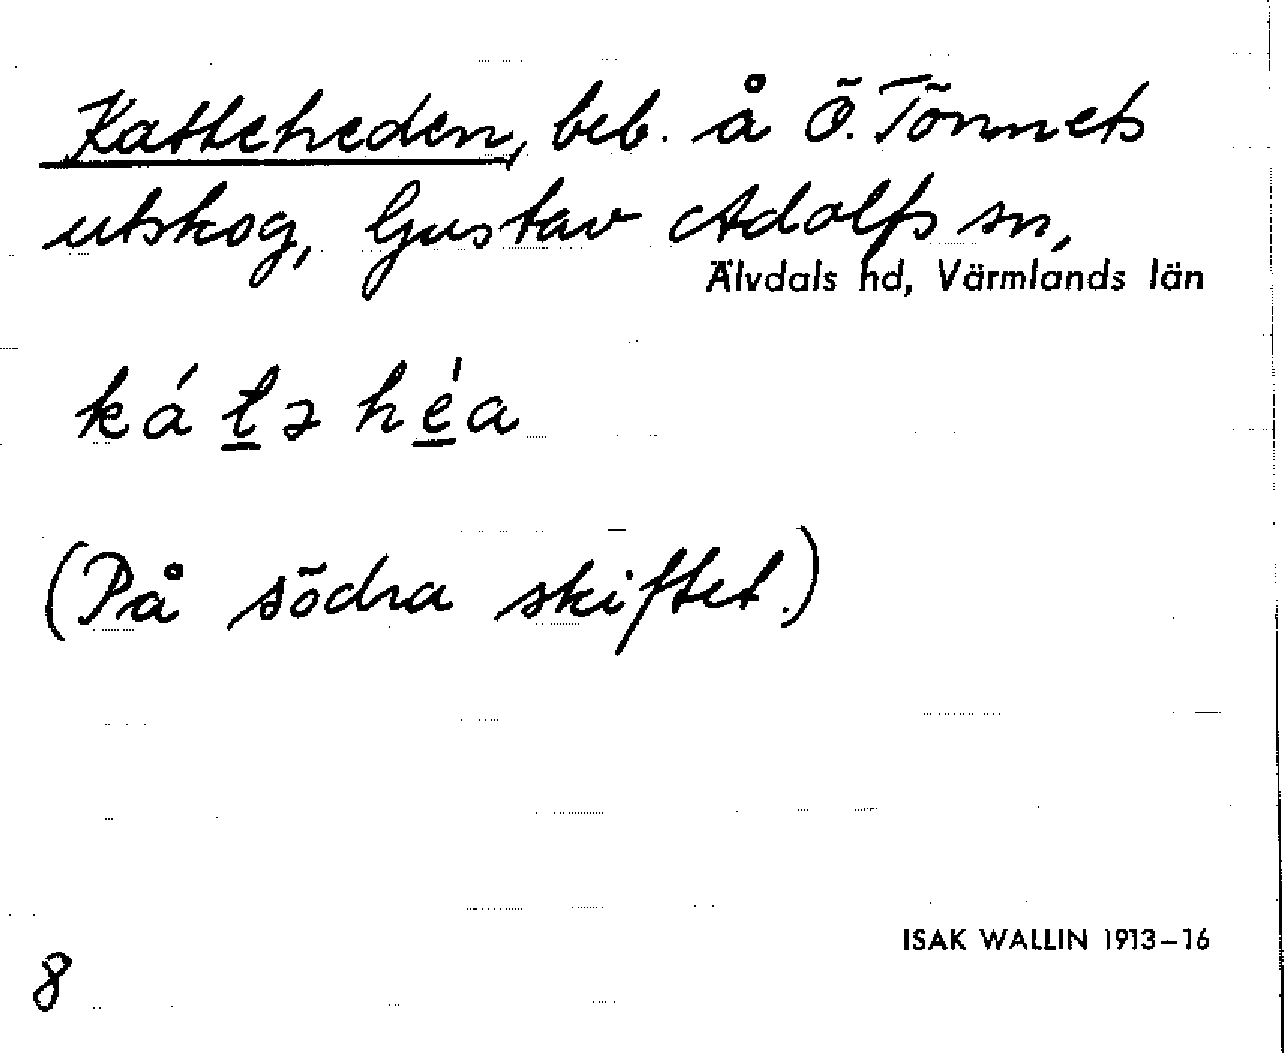 Katteheden, beb. å Ö. Tönnets
utskog, Gustav Adolfs sn,
Älvdals hd, Värmlands län
ká t̲ə hé̲a
(På södra skiftet.)
ISAK WALLIN 1913–16
8